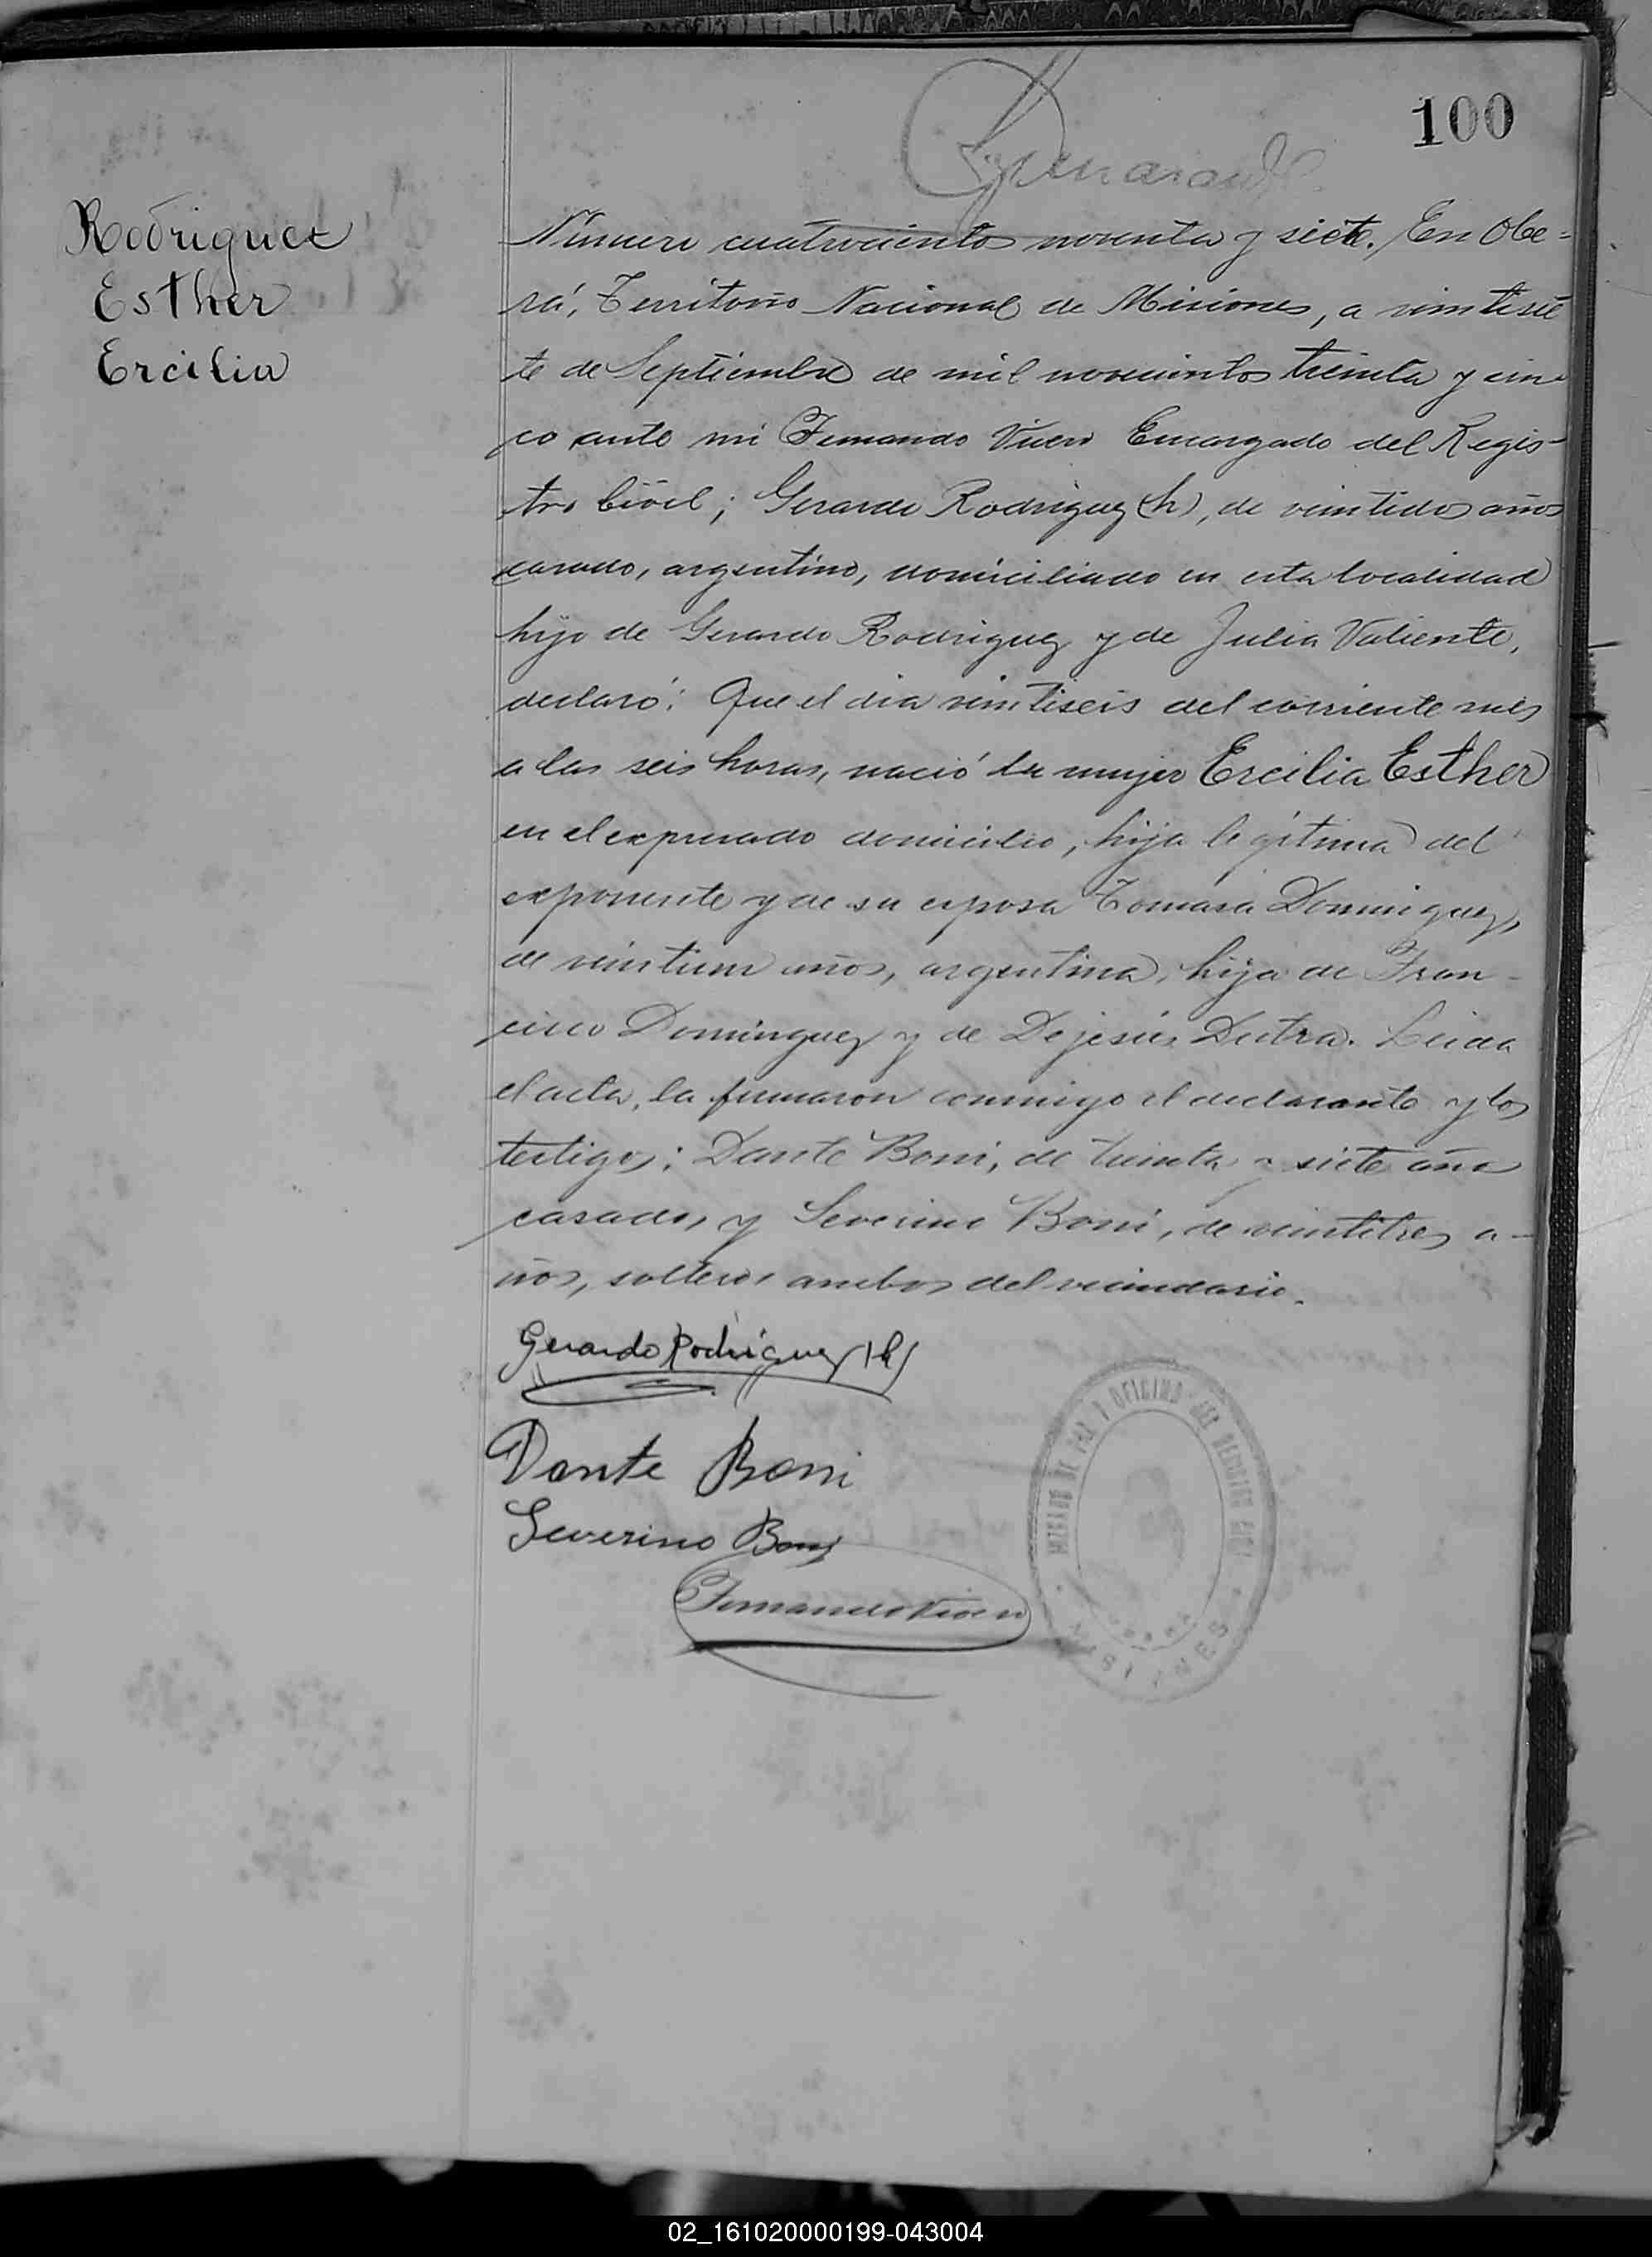 100
Rodriguez
Esther
Ercilia
Número cuatrocientos noventa y siete. En Obe=
rá, Territorio Nacional de Misiones, a veintisie
te de Septiembre de mil novecientos treinta y cin-
co ante mi Fernando Encargado del Regis-
tro Civil; Gerardo Rodriguez (h), de veintidos años
casado, argentino, domiciliado en esta localidad
hijo de Gerardo Rodriguez y de Julia Valiente,
declaró: Que el dia veintiseis del corriente mes
a las seis horas, nació la mujer Ercilia Esther
en el expresado domicilio, hija legitima del
exponente y de su esposa Tomasa Dominguez,
de veintiun años, argentina, hija de Fran-
cisco Dominguez y de Dejesús Dutra. Leida
el acta, la firmaron conmigo el declarante y los
testigos: Dante Boni, de treinta y siete años
casado, y Severino Boni, de veintitres a-
ños, soltero, ambos del vecindario.
Gerardo Rodriguez (h)
Dante Boni
Severino Boni
Fernando
JUZGADO DE PAZ Y OFICINA DEL REGISTRO CIVIL
MISIONES
02_161020000199-043004